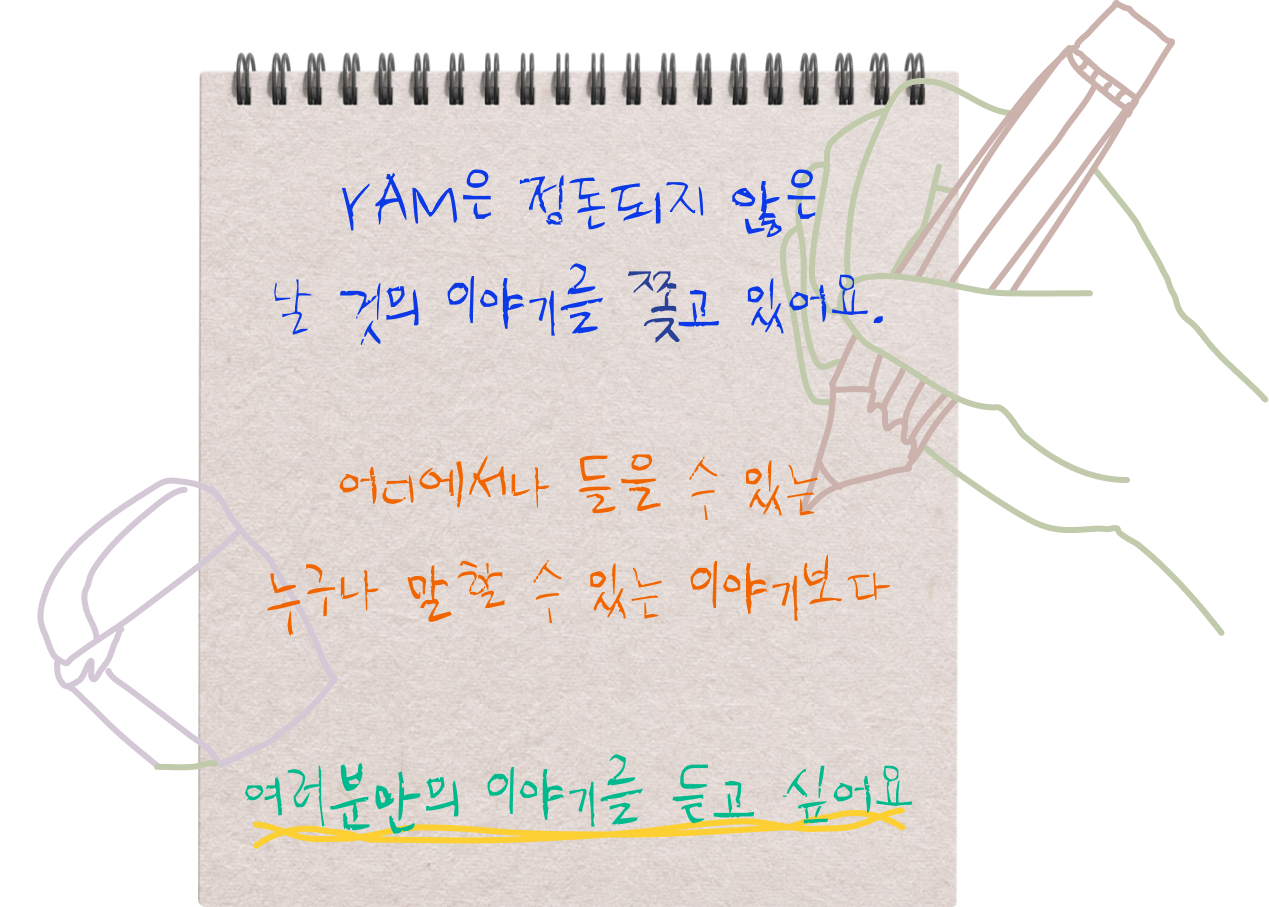 YAM은 정돈되지 않은
날 것의 이야기를 쫒고 있어요.
어디에서나 들을 수 있는
누구나 말할 수 있는 이야기보다
여러분만의 이야기를 듣고 싶어요